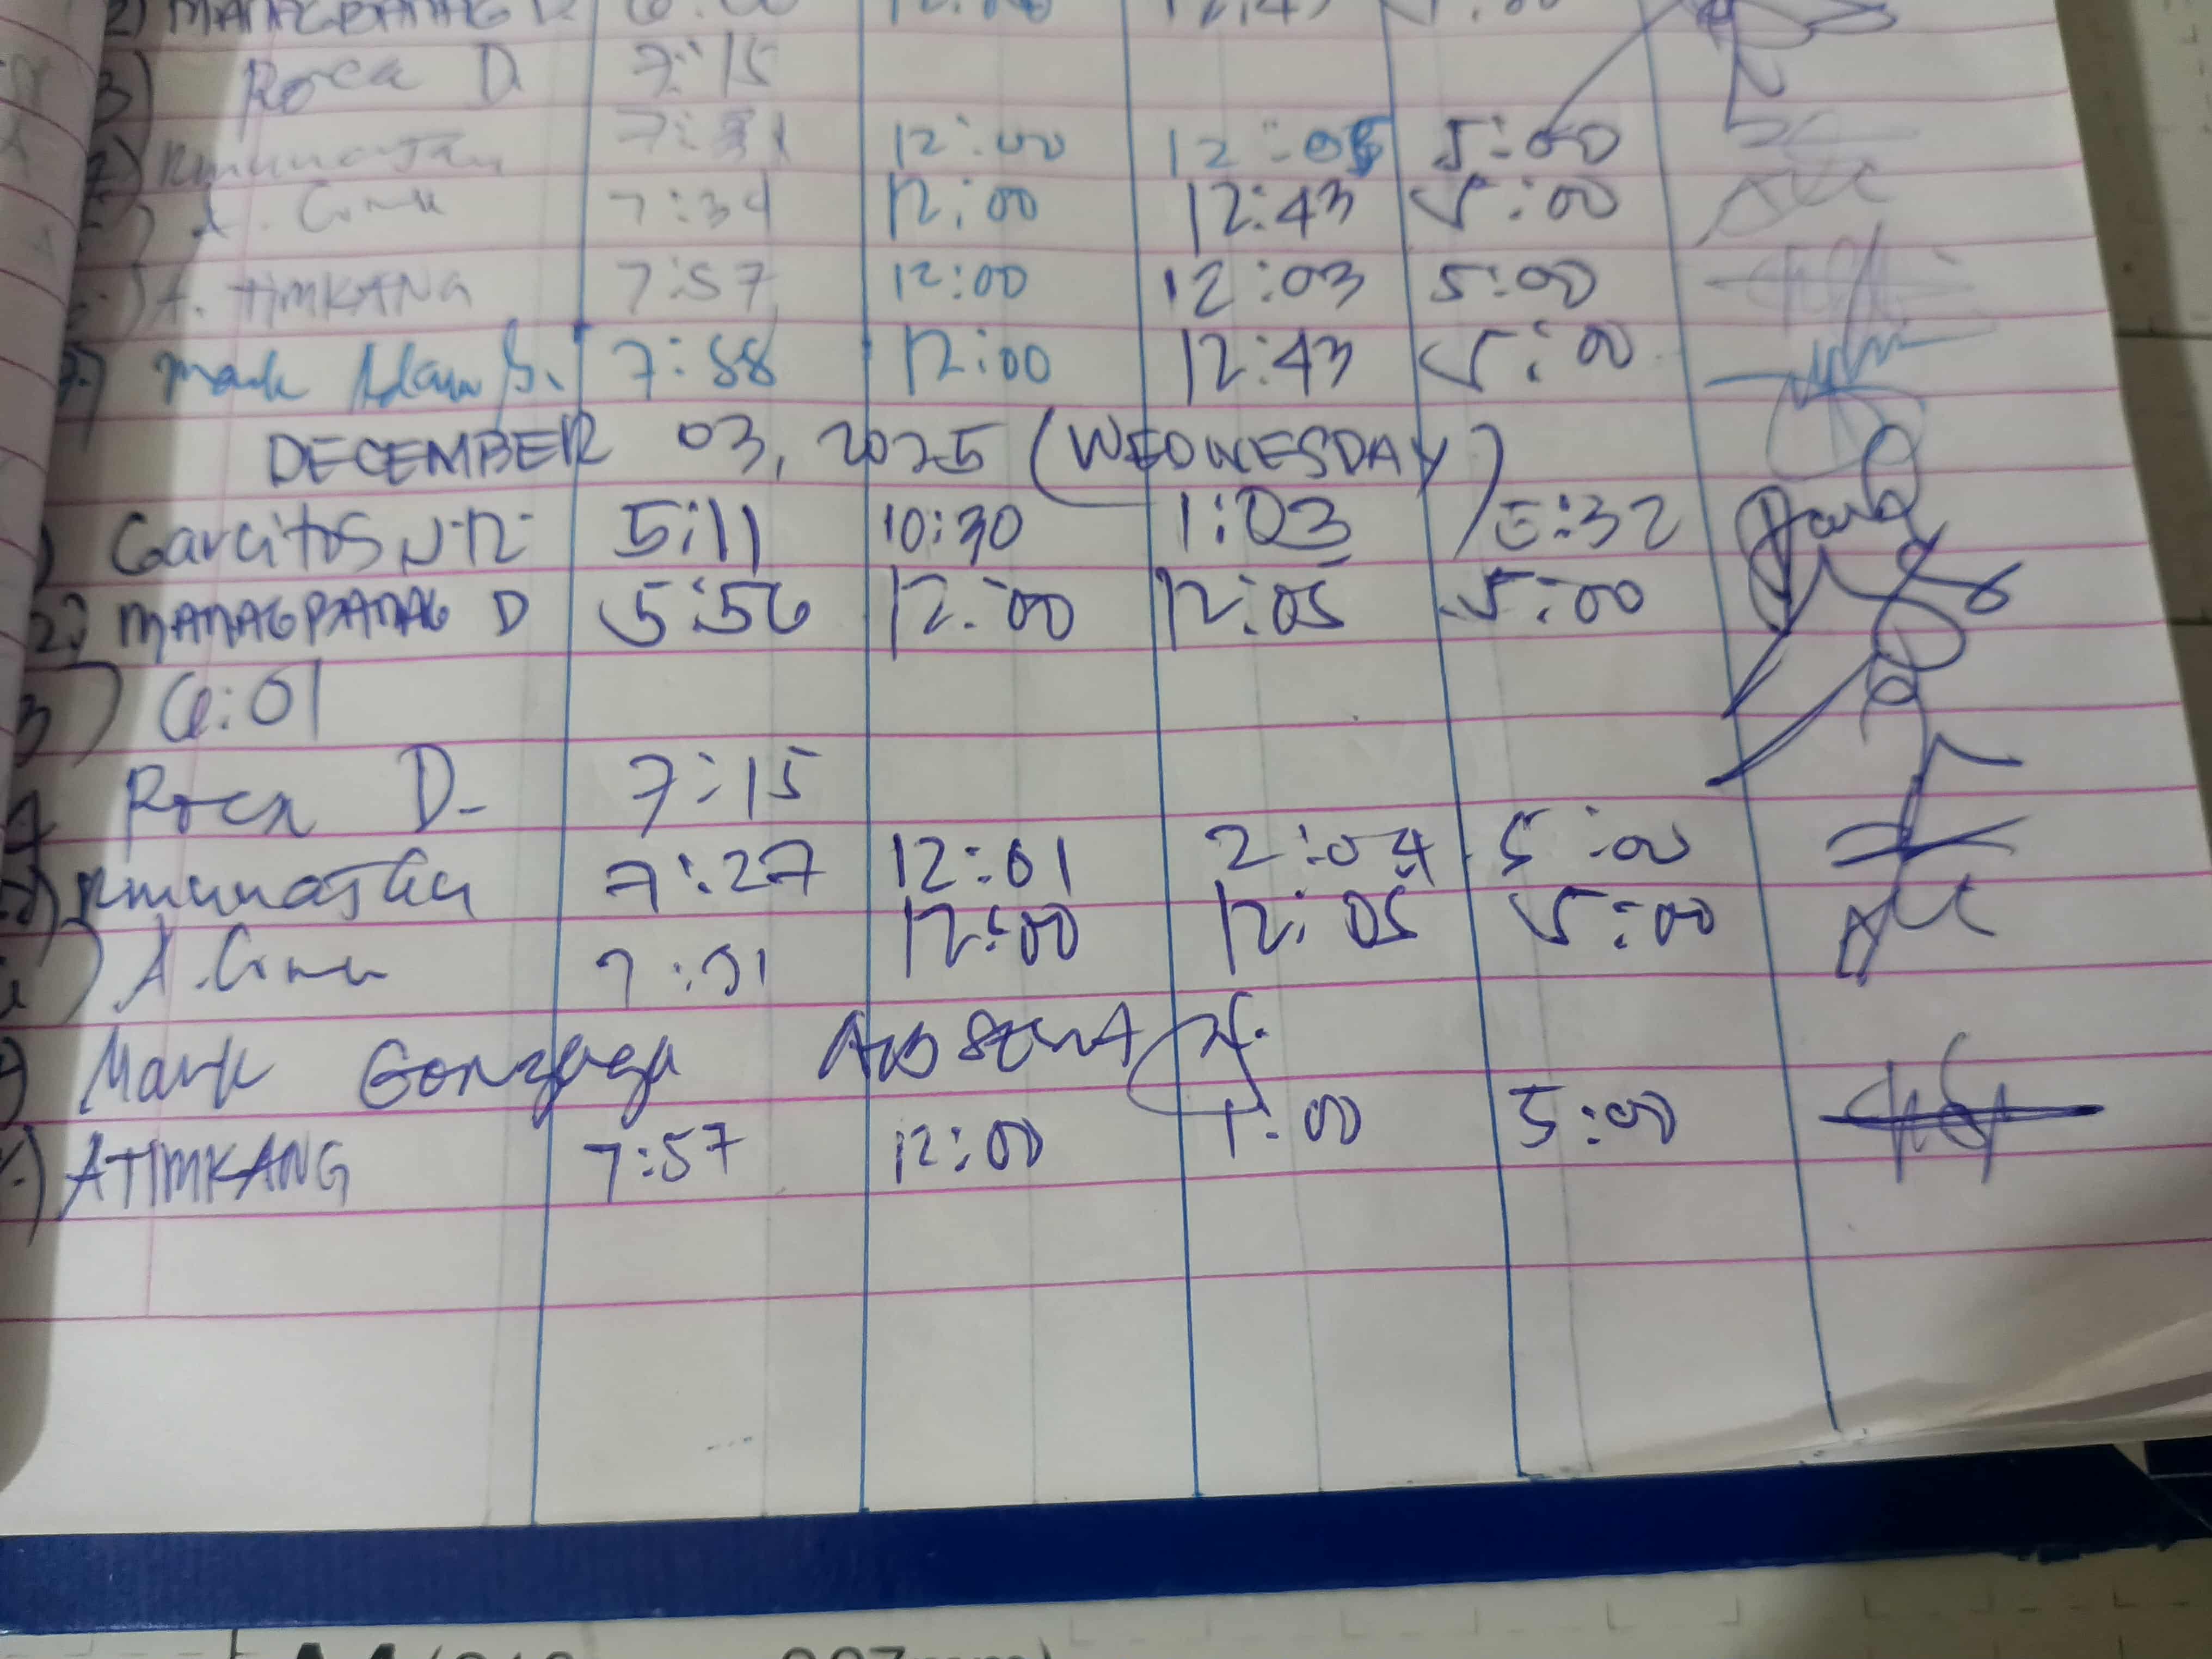 2) MANAGBANAG D 6:00
3) Roca D 7:15
12:00 12:05 5:00
A. 7:34 12:00 12:43 5:00
A. TIMKANG 7:57 12:00 12:03 5:00
7.) Mark Adam S. 7:58 12:00 12:43 5:00
DECEMBER 03, 2025 (WEDNESDAY)
Garcitos JR. 5:11 10:30 1:03 5:32
2.) MANAGBANAG D 5:56 12:00 12:05 5:00
3) 6:01
Roca D- 7:15
7:27 12:01 2:04 5:00
A. 7:31 12:00 12:05 5:00
Mark Gonzaga Absent
ATIMKANG 7:57 12:00 1:00 5:00